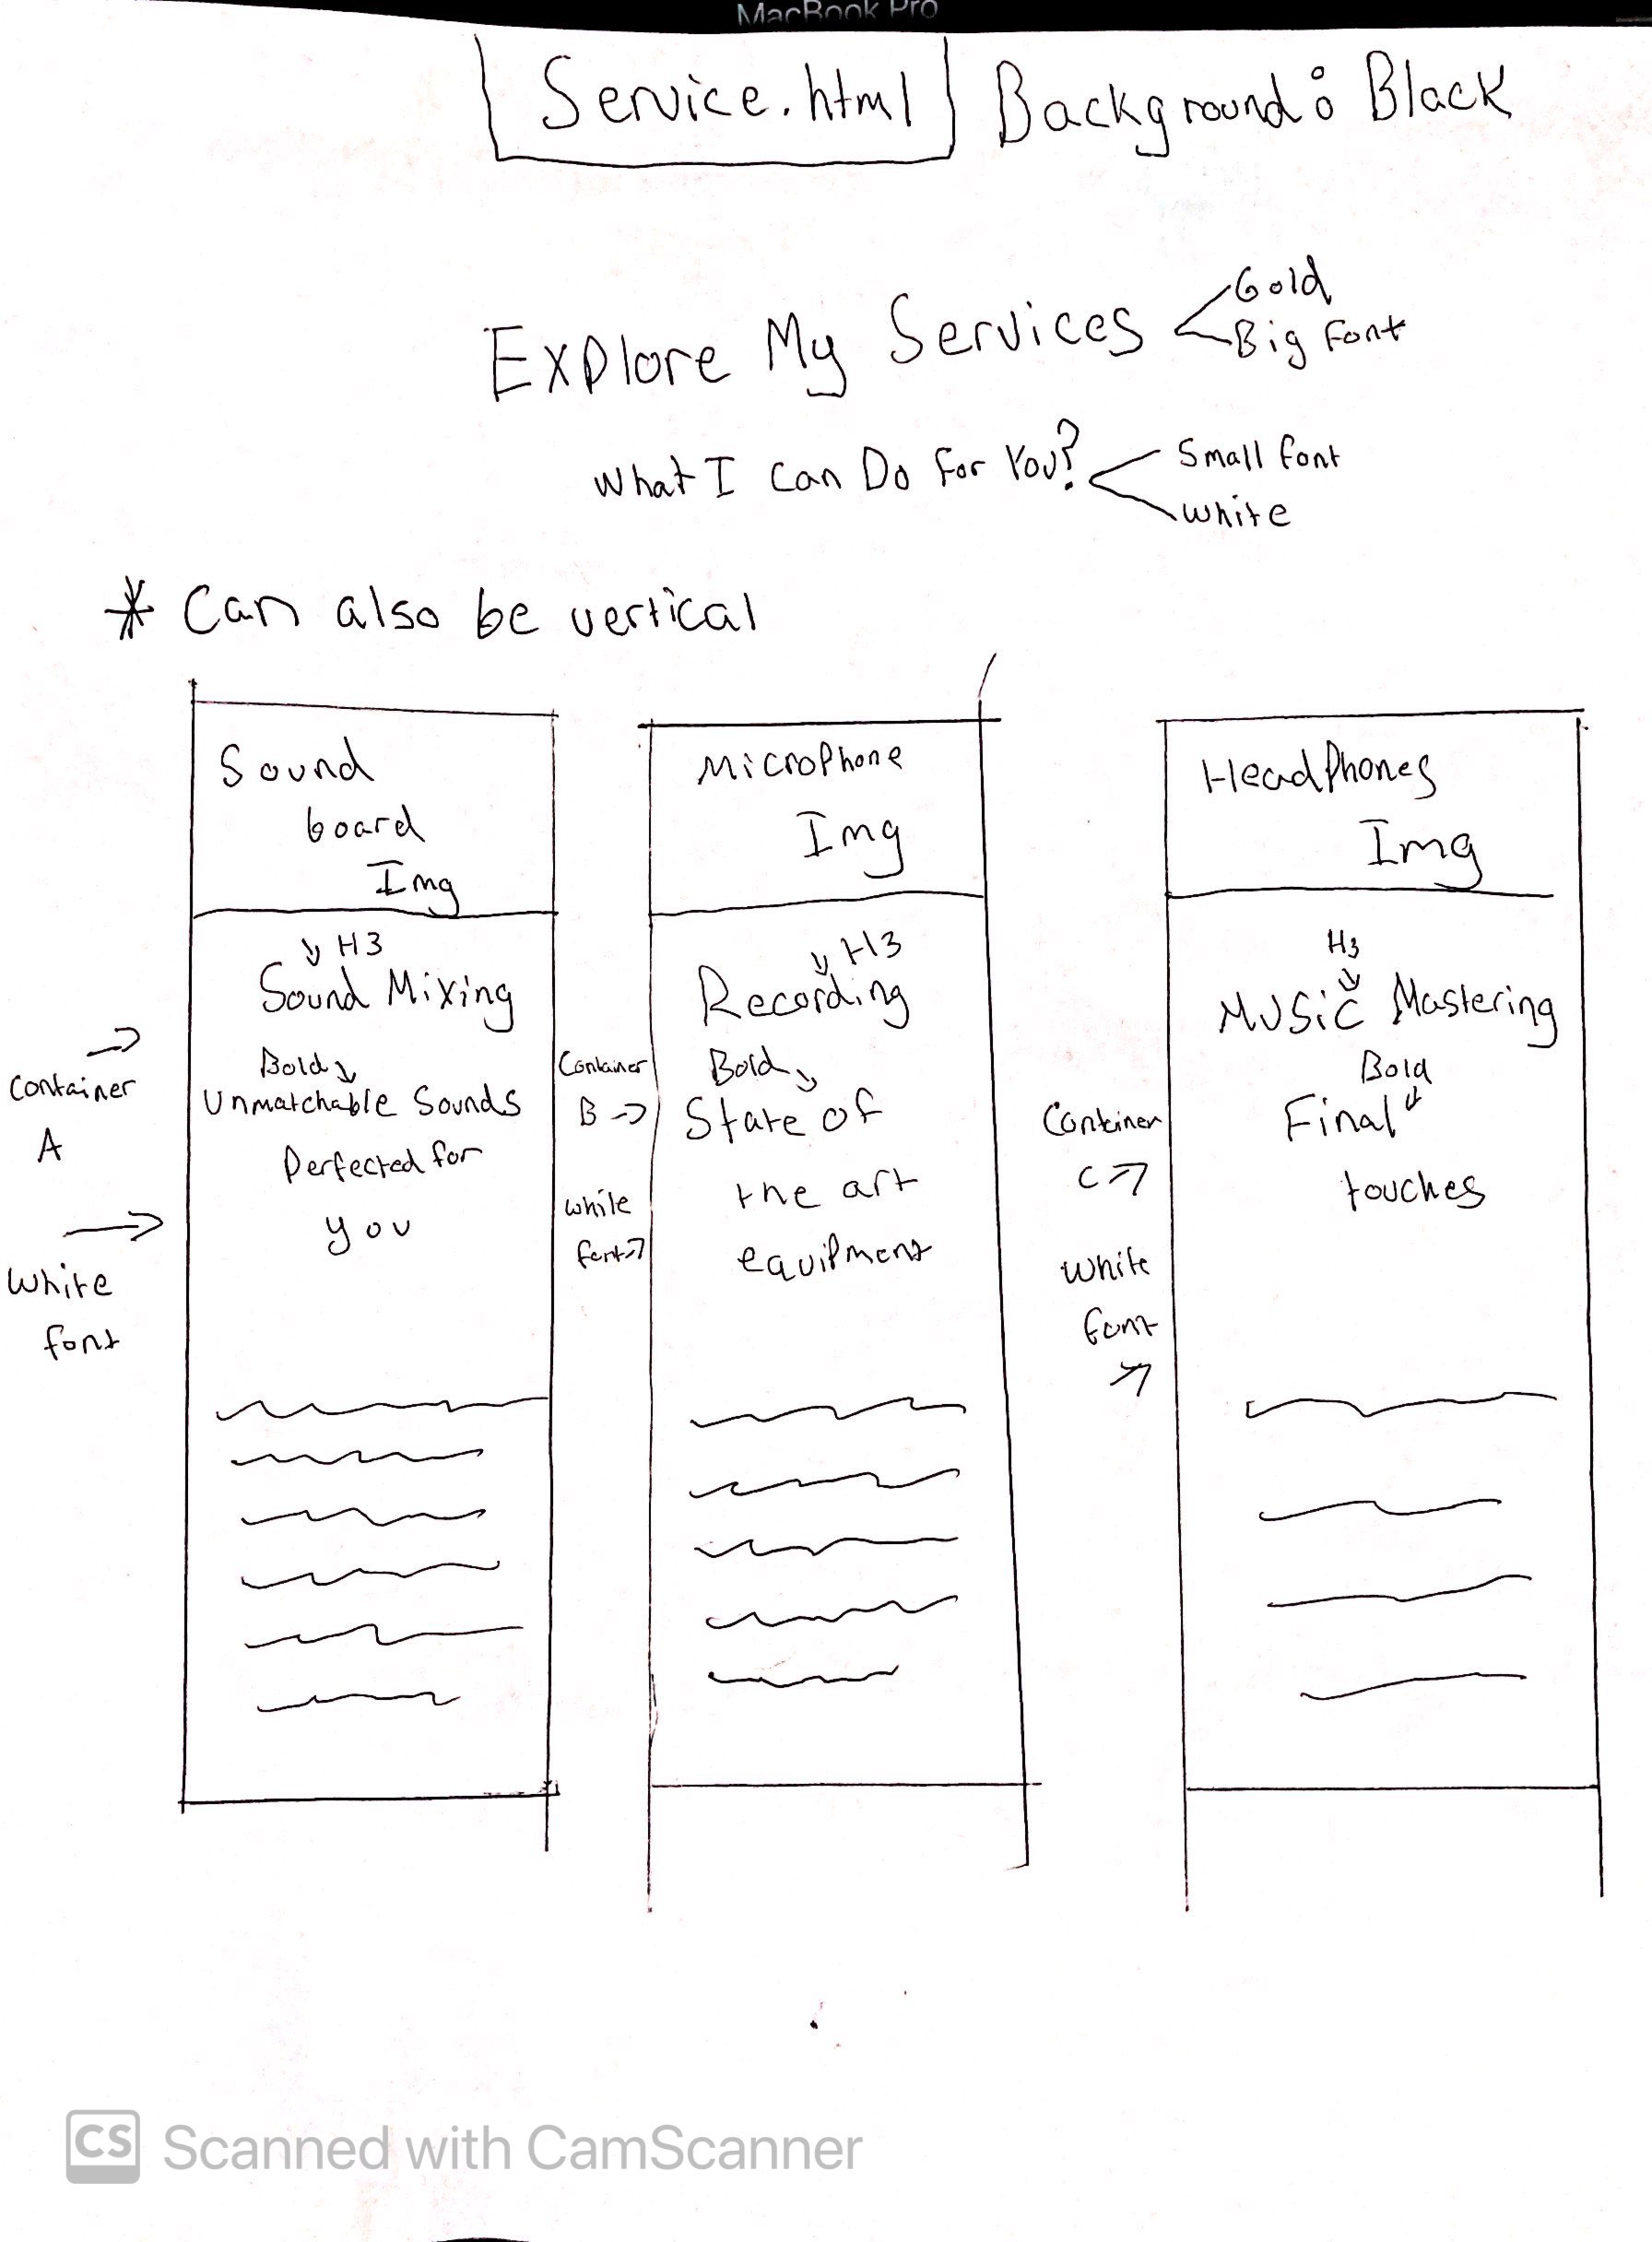 MacBook Pro
Service.html Background: Black
Explore My Services
Gold
Big Font
What I Can Do For You?
Small font
white
* Can also be vertical
Sound
board
Img
H3
Sound Mixing
Bold
Unmatchable Sounds
Perfected for
you
Container
A
White
font
Microphone
Img
H3
Recording
Bold
State of
the art
equipment
Container
B
white
font
Headphones
Img
H3
Music Mastering
Bold
Final
touches
Container
C
white
font
CS Scanned with CamScanner